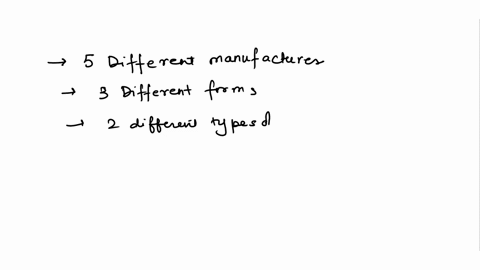 → 5 Different manufactures
→ 3 Different forms
→ 2 different types